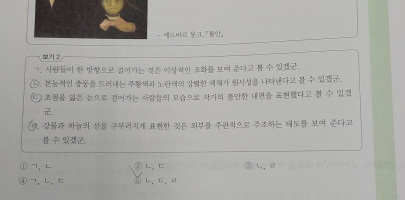 - 에드바르 뭉크, 「불안」
보기 2
ㄱ. 사람들이 한 방향으로 걸어가는 것은 이상적인 조화를 보여 준다고 볼 수 있겠군.
ㄴ. 본능적인 충동을 드러내는 주황색과 노란색의 강렬한 색채가 원시성을 나타낸다고 볼 수 있겠군.
ㄷ. 초점을 잃은 눈으로 걸어가는 사람들의 모습으로 작가의 불안한 내면을 표현했다고 볼 수 있겠
군.
ㄹ. 강물과 하늘의 선을 구부러지게 표현한 것은 외부를 주관적으로 주조하는 태도를 보여 준다고
볼 수 있겠군.
① ㄱ, ㄴ ② ㄴ, ㄷ ③ ㄴ, ㄹ
④ ㄱ, ㄴ, ㄷ ⑤ ㄴ, ㄷ, ㄹ